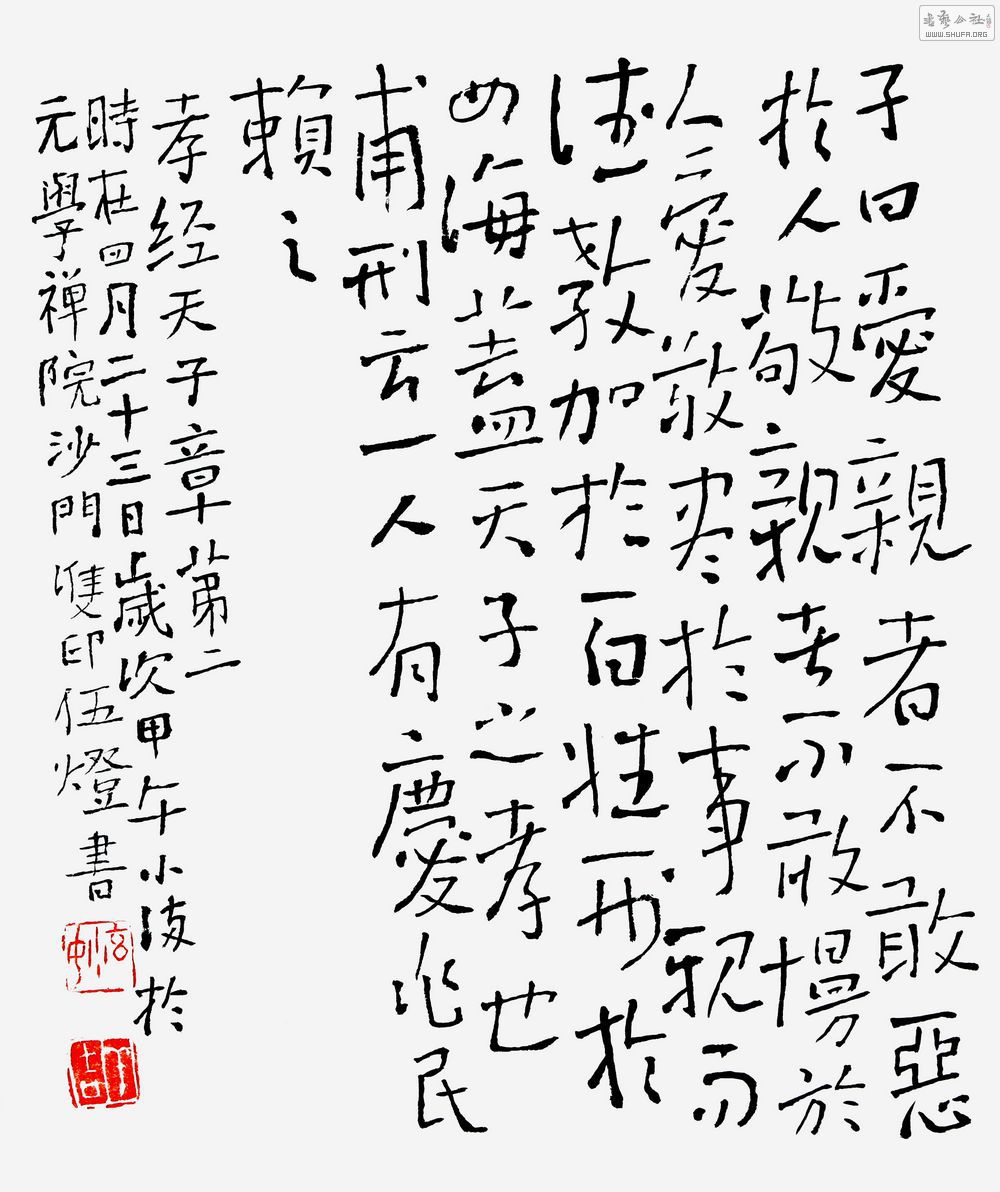 子曰愛親者不敢惡
於人敬親者不敢慢於
人愛敬尽於事親而
德教加於百姓刑於
四海蓋天子之孝也
甫刑云一人有慶兆民
賴之
孝经天子章第二
時在四月二十三日歲次甲午小满於
元學禅院沙門雙印伍燈書
書藝公社
WWW.SHUFA.ORG